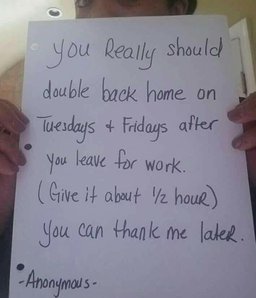 you Really should
double back home on
Tuesdays & Fridays after
you leave for work.
(Give it about ½ hour)
you can thank me later.
-Anonymous-